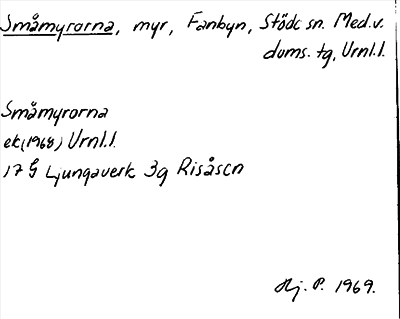 Småmyrorna, myr, Fanbyn, Stöde sn. Med.v.
doms. tg, Urnl.l.
Småmyrorna
ek(1968) Urnl.l.
17 G Ljungaverk 3g Risåsen
Hj. P. 1969.